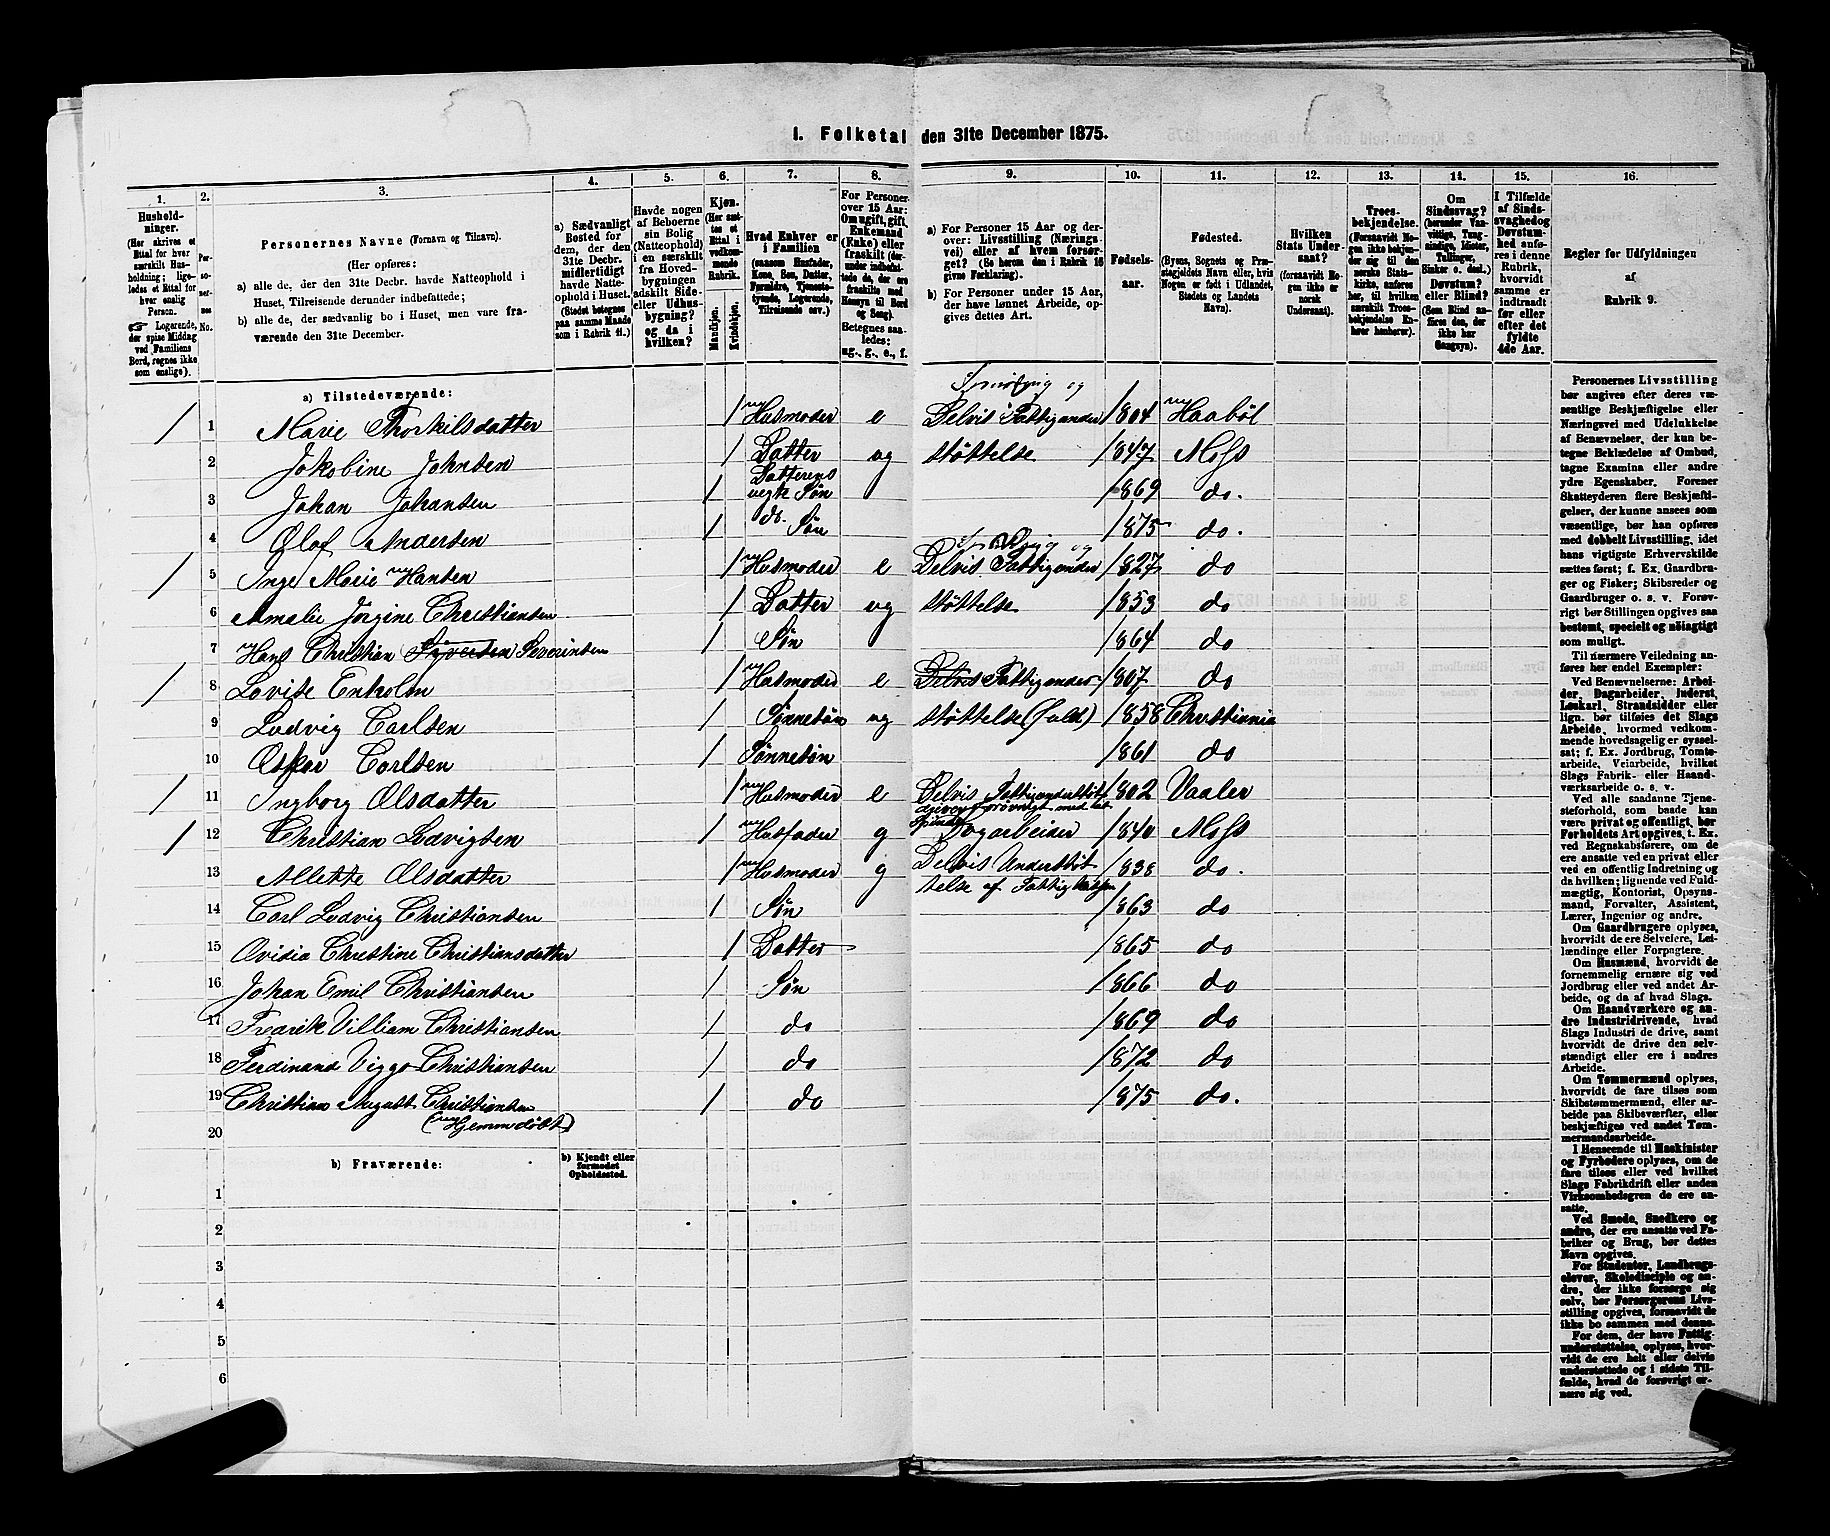 1. Folketal den 31te December 1875.
1. 2. 3. 4. 5. 6. 7. 8. 9. 10. 11. 12. 13. 14. 15. 16.
Hushold-
ninger.
(Her skrives et
Ettal for hver
særskilt Hus-
holdning; lige-
ledes et Ettal for
hver enslig
Person.
☞ Logerende,
der spise Middag
ved Familiens
Bord, regnes ikke
som enslige).
Per-
so-
ner-
nes
No.
Personernes Navne (Fornavn og Tilnavn).
(Her opføres:
a) alle de, der den 31te Decbr. havde Natteophold i
Huset, Tilreisende derunder indbefattede;
b) alle de, der sædvanlig bo i Huset, men vare fra-
værende den 31te December.
a) Sædvanligt
Bosted for
dem, der den
31te Decbr.
midlertidigt
havde Natte-
ophold i Huset.
(Stedet betegnes
paa samme Maade
som i Rubrik 11.)
Havde nogen
af Beboerne
sin Bolig
(Natteophold)
i en særskilt
fra Hoved-
bygningen
adskilt Side-
eller Udhus-
bygning?
og da i
hvilken?
Kjøn.
(Her sæt-
tes et
Ettal i
vedkom-
mende
Rubrik.
Mandkjøn.
Kvindekjøn.
Hvad Enhver er
i Familien
(saasom Husfader,
Kone, Søn, Datter,
Forældre, Tjeneste-
tyende, Logerende,
Tilreisende osv.)
For Personer
over 15 Aar:
Om ugift, gift,
Enkemand
(Enke) eller
fraskilt (der-
under indbefat-
tede de, der ere
fraskilte med
Hensyn til Bord
og Seng).
Betegnes saa-
ledes:
ug., g., e., f.
a) For Personer 15 Aar og der-
over: Livsstilling (Nærings-
vei) eller af hvem forsør-
get? (Se herom den i Rubrik 16
givne Forklaring).
b) For Personer under 15 Aar,
der have lønnet Arbeide, op-
gives dettes Art.
Fødsels-
aar.
Fødested.
(Byens, Sognets og Præ-
stegjeldets Navn eller, hvis
Nogen er født i Udlandet,
Stedets og Landets
Navn).
Hvilken
Stats Under-
saat?
(forsaavidt No-
gen ikke er
norsk
Undersaat).
Troes-
bekjendelse.
(Forsaavidt No-
gen ikke bekjen-
der sig til den
norske Stats-
kirke, anføres
her, til hvilken
særskilt Troes-
bekjendelse En-
hver henhører).
Om
Sindssvag?
(herunder Van-
vittige, Tung-
sindige, Idioter,
Tullinger,
Sinker o. desl.)
Døvstum?
eller Blind?
(Som Blind an-
føres den, der
ikke har
Gangsyn).
I Tilfælde
af Sinds-
svaghed og
Døvstum-
hed anfø-
res i denne
Rubrik,
hvorvidt
samme er
indtraadt
før eller
efter det
fyldte
4de Aar.
Regler for Udfyldningen
af
Rubrik 9.
a) Tilstedeværende:
1 1 Marie Thorkilsdatter 1 Husmoder e Delvis Fattigunder 1804 Haabøl
2 Jakobine Johnsen 1 Datter ug støttelse 1847 Moss
3 Johan Johansen 1 Datterens uegte Søn 1869 do.
4 Olof Andersen 1 do. Søn 1875 do.
1 5 Inge Marie Hansen 1 Husmoder e Delvis Fattigunder 1827 do
6 Amalie Jørgine Christiansen 1 Datter ug støttelse 1853 do
7 Hans Christian Severinsen 1 Søn 1864 do
1 8 Lovise Enholm 1 Husmoder e Delvis Fattigunder 1807 do
9 Ludvig Carlsen 1 Sønnesøn ug støttelse (fuld) 1858 Christiania
10 Oskar Carlsen 1 Sønnesøn 1861 do
1 11 Ingborg Olsdatter 1 Husmoder e Delvis 1802 Vaaler
1 12 Christian Ludvigsen 1 Husfader g Dagarbeider 1840 Moss
13 Allette Olsdatter 1 Husmoder g Delvis Understøt 1838 do.
telse af Fattigkassen
14 Carl Ludvig Christiansen 1 Søn 1863 do
15 Ovidia Christine Christiansdatter 1 Datter 1865 do
16 Johan Emil Christiansen 1 Søn 1866 do
17 Fredrik Villiam Christiansen 1 do 1869 do
18 Ferdinand Viggo Christiansen 1 do 1872 do
19 Christian August Christiansen 1 do 1875 do.
(Hjemmdøbt)
20
b) Fraværende:
b) Kjendt eller
formodet
Opholdssted.
1
2
3
4
5
6
Personernes Livsstilling
bør angives efter deres væ-
sentlige Beskjæftigelse eller
Næringsvei med Udelukkelse
af Benævnelser, der kun be-
tegne Beklædelse af Ombud,
tagne Examina eller andre
ydre Egenskaber. Forener
Skatteyderen flere Beskjæfti-
gelser, der kunne ansees som
væsentlige, bør han opføres
med dobbelt Livsstilling, idet
hans vigtigste Erhvervskilde
sættes først; f. Ex. Gaardbru-
ger og Fisker; Skibsreder og
Gaardbruger o. s. v. Forøv-
rigt bør Stillingen opgives saa
bestemt, specielt og nøiagtigt
som muligt.
Til nærmere Veiledning an-
føres her endel Exempler:
Ved Benævnelserne: Arbei-
der, Dagarbeider, Inderst,
Løskarl, Strandsidder eller
lign. bør tilføies det Slags
Arbeide, hvormed vedkom-
mende hovedsagelig er syssel-
sat; f. Ex. Jordbrug, Tomte-
arbeide, Veiarbeide, hvilket
Slags Fabrik- eller Haand-
værksarbeide o. s. v.
Ved alle saadanne Tjene-
steforhold, som baade kan
være privat og offentligt, bør
Forholdets Art opgives, t. Ex.
ved Regnskabsførere, om de
ere ansatte ved en privat eller
ved en offentlig Indretning og
da hvilken; lignende ved Fuld-
mægtig, Kontorist, Opsyns-
mand, Forvalter, Assistent,
Lærer, Ingeniør og andre.
Om Gaardbrugere oplyses,
hvorvidt de ere Selveiere, Lei-
lændinge eller Forpagtere.
Om Husmænd, hvorvidt de
fornemmelig ernære sig ved
Jordbrug eller ved andet Ar-
beide, og da af hvad Slags.
Om Haandværkere og an-
dre Industridrivende, hvad
Slags Industri de drive, samt
hvorvidt de drive den selv-
stændigt eller ere i andres
Arbeide.
Om Tømmermænd oplyses,
hvorvidt de fare tilsøs som
Skibstømmermænd, eller ar-
beide paa Skibsværfter, eller
beskjæftiges ved andet Tøm-
mermandsarbeide.
I Henseende til Maskinister
og Fyrbødere oplyses, om de
fare tilsøs eller ved hvilket
Slags Fabrikdrift eller anden
Virksomhedsgren de ere an-
satte.
Ved Smede, Snedkere og
andre, der ere ansatte ved Fa-
briker og Brug, bør dettes
Navn opgives.
For Studenter, Landbrugs-
elever, Skoledisciple og an-
dre, der ikke forsørge sig
selv, bør Forsørgerens Livs-
stilling opgives, forsaavidt de
ikke bo sammen med denne.
For dem, der have Fattig-
understøttelse, oplyses, hvor-
vidt de ere helt eller delvis
understøttede og i sidste Til-
fælde, hvad de forøvrigt er-
nære sig ved.